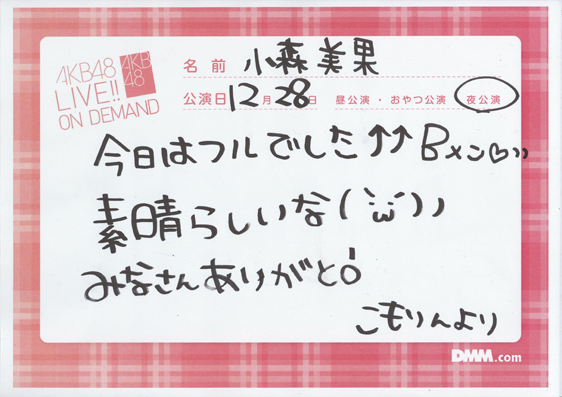 AKB48
LIVE!!
ON DEMAND
AKB
48
名前 小森美果
公演日 12月28日 昼公演・おやつ公演 夜公演
今日はフルでした↑↑Bメン♡))
素晴らしいな(´ω`))
みなさんありがとo!
こもりんより
DMM.com